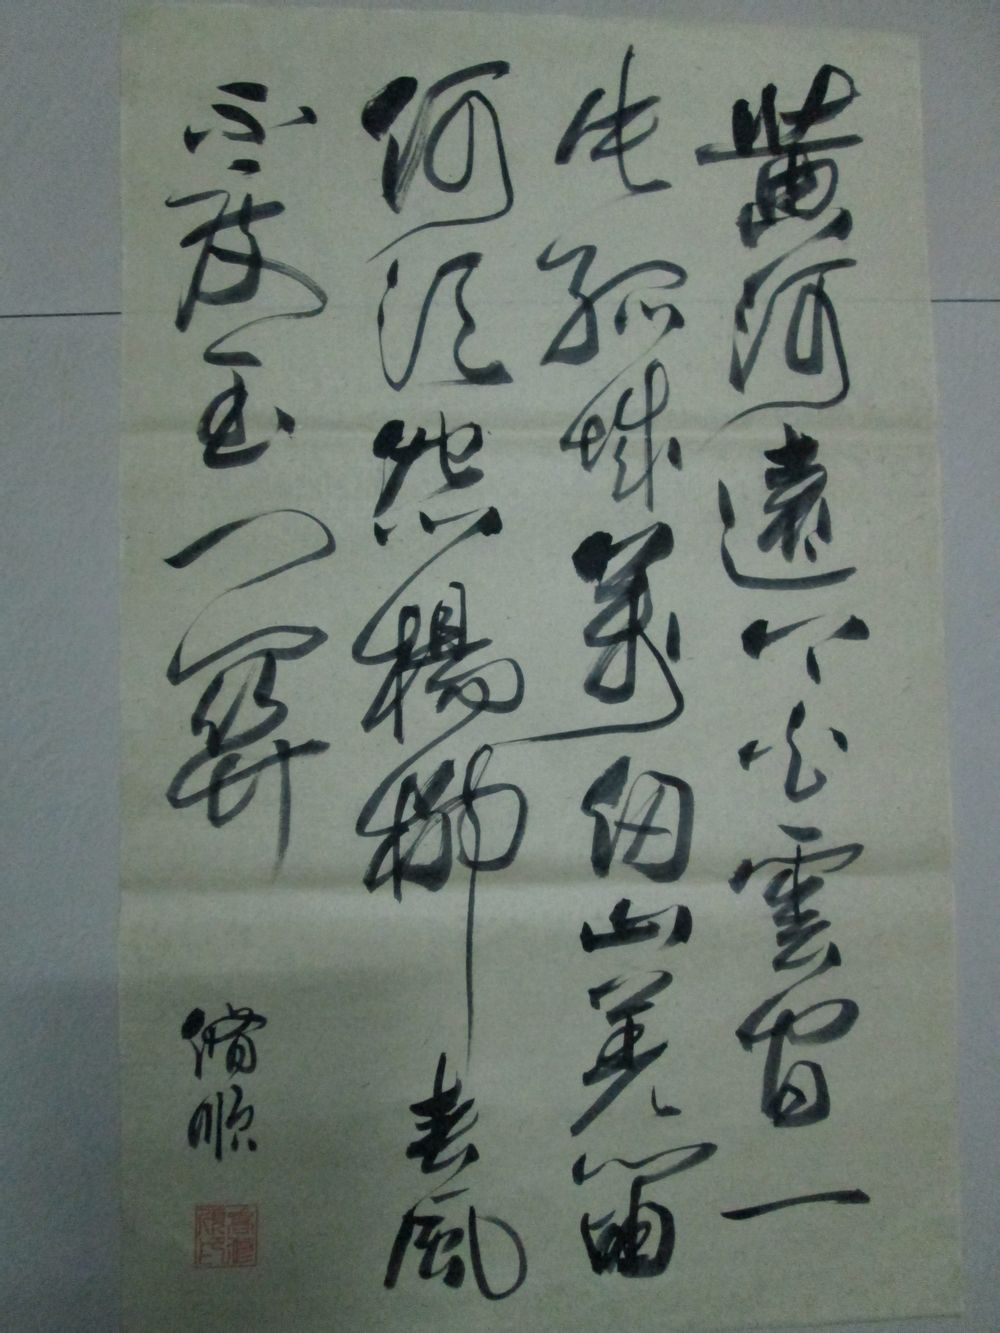 黄河遠上白雲間一
片孤城萬仞山羌笛
何須怨楊柳春風
不度玉門關
脩順